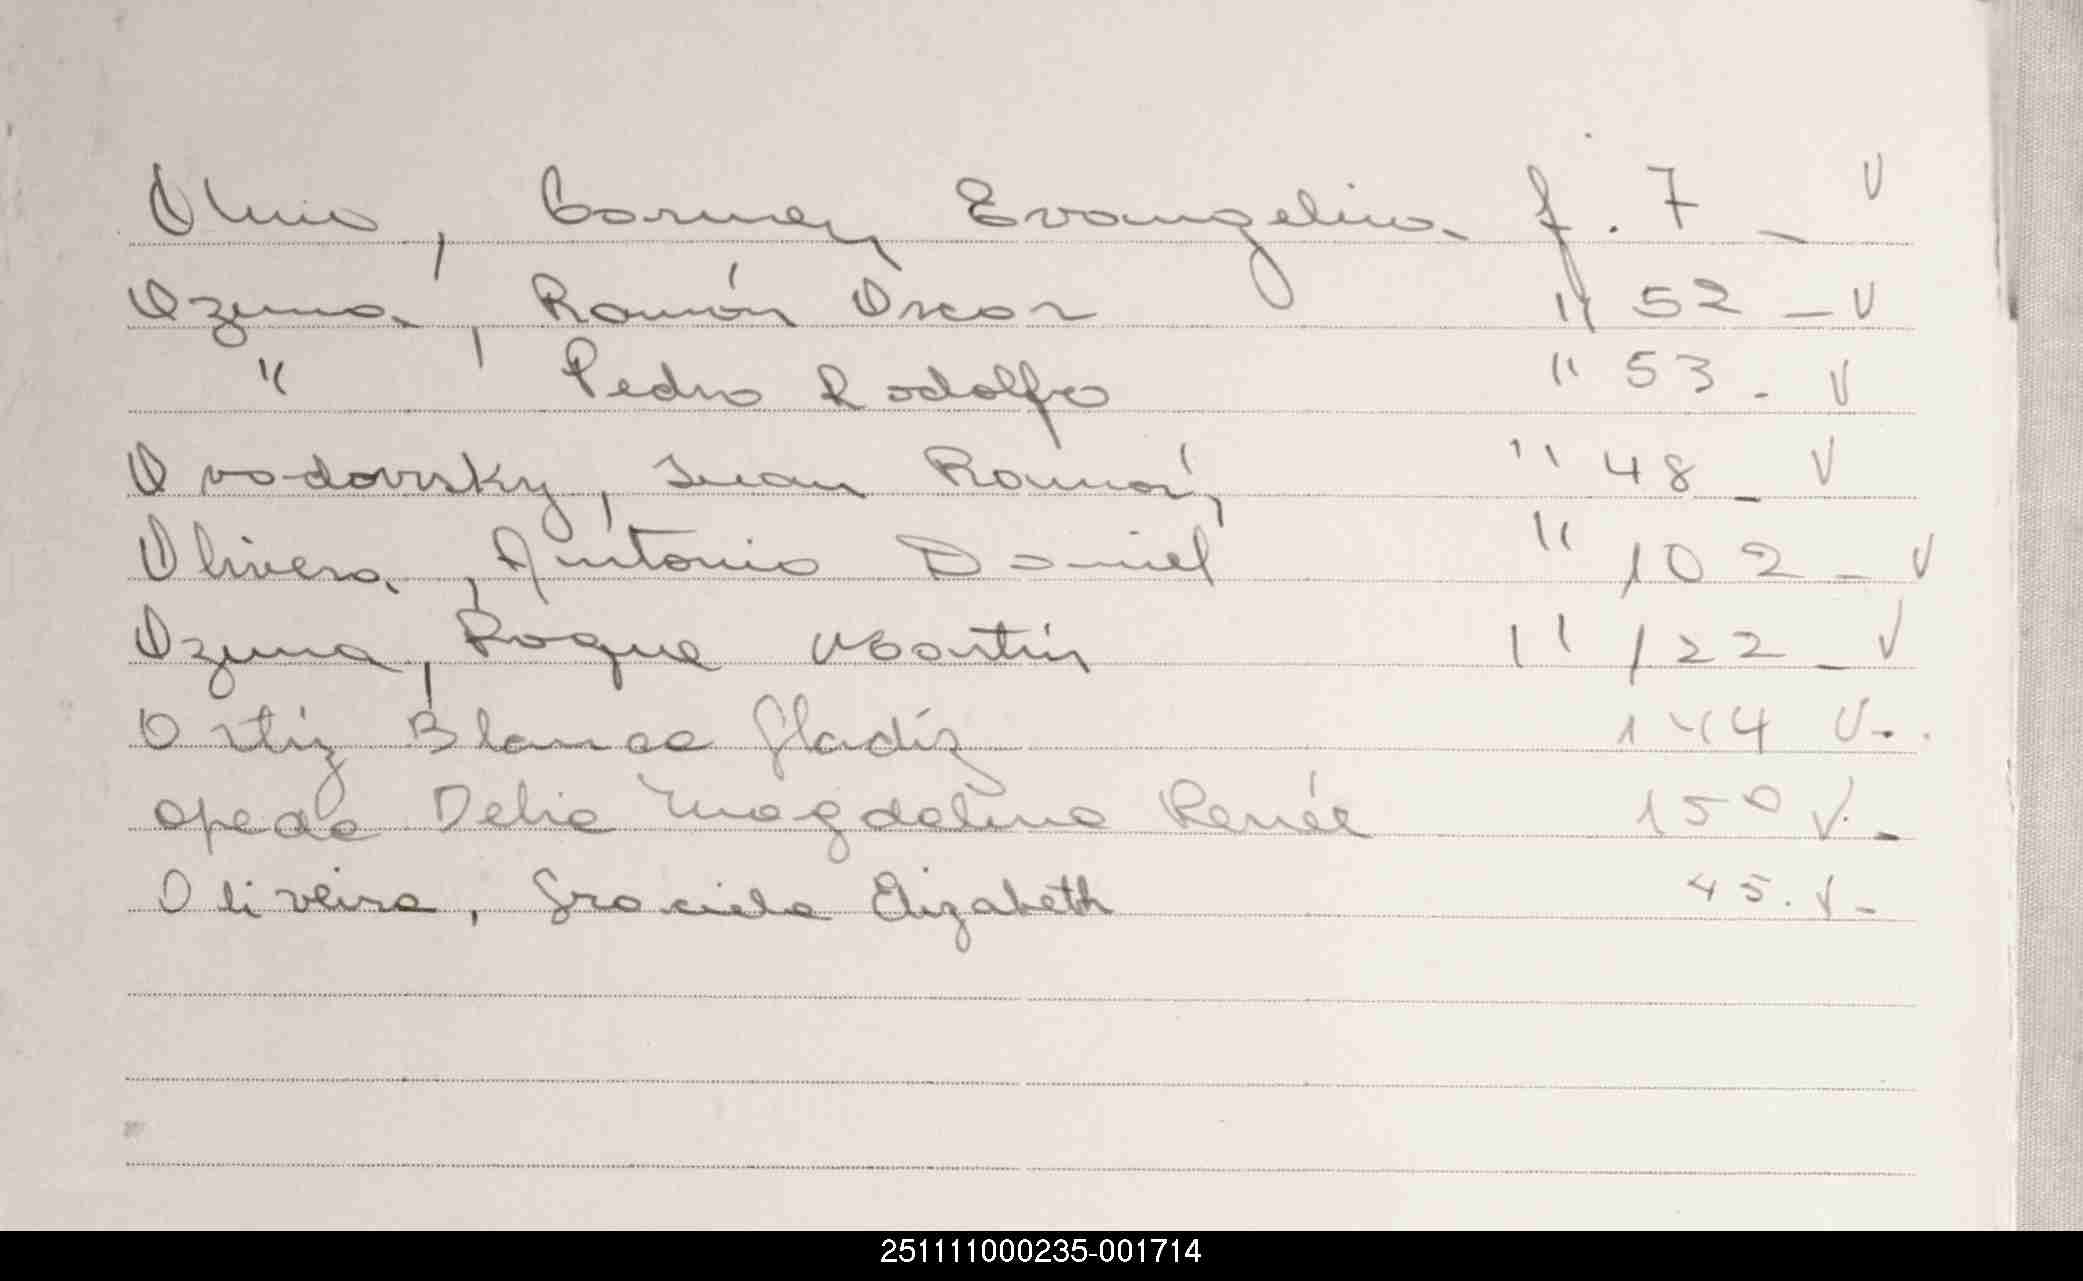 Olmo, Carmen Evangelina. f. 7 _ V
Ozuna, Ramón Oscar " 52 _ V
" Pedro Rodolfo " 53 - V
Ovodovsky, Juan Ramón " 48 _ V
Olivera, Antonio Daniel " 102 _ V
Ozuna, Roque Martín " 122 _ V
Ortiz Blanca Gladiz 144 V.
Opeda Delia Magdalena Renée 150 V. _
Oliveira, Graciela Elizabeth 45. V -
251111000235-001714